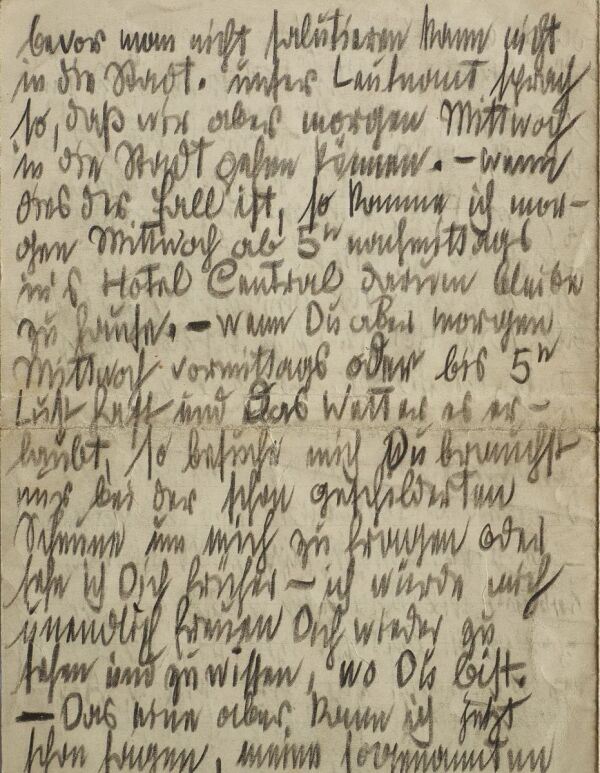 bevor man nicht salutieren kann nicht
in die Stadt. unser Leutnant sprach
so, daß wir aber morgen Mittwoch
in die Stadt gehen können. – wenn
dies der Fall ist, so komme ich mor-
gen Mittwoch ab 5 h nachmittags
in's Hotel Central darum bleibe
zu hause. – wenn Du aber morgen
Mittwoch vormittags oder bis 5 h
Lust hast und das Wetter es er-
laubt, so besuche mich Du brauchst
nur bei der schon geschilderten
Scheune um mich zu fragen oder
sehe ich Dich früher – ich würde mich
unendlich freuen Dich wieder zu
sehen und zu wissen, wo Du bist.
– Das eine aber kann ich jetzt
schon sagen, meine sogenannten